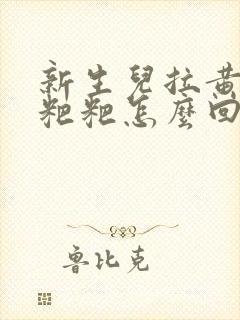 新生兒拉黃
粑粑怎麼回
魯比克